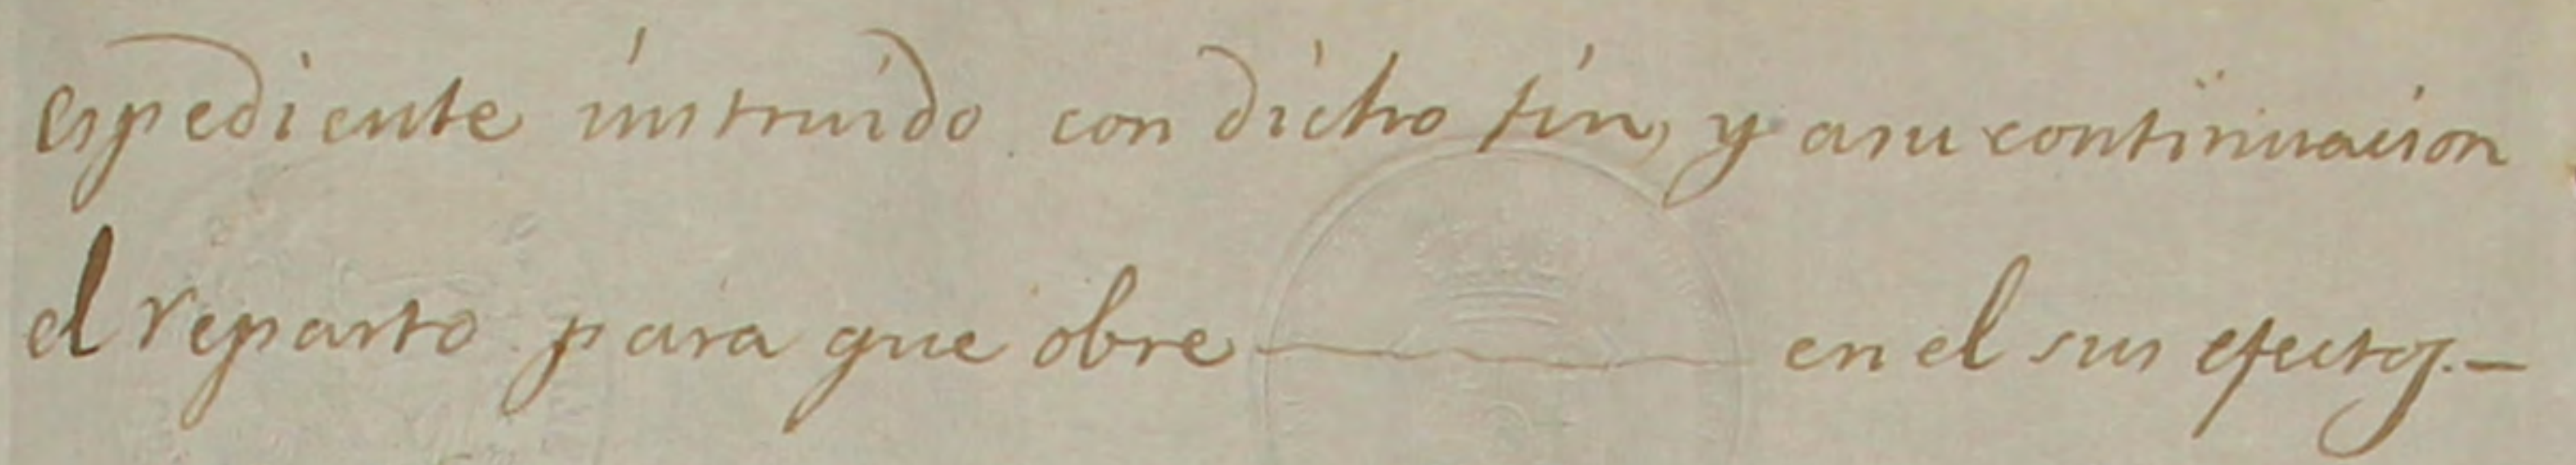 espediente instruido con dicho fin, y asu continuacion
el reparto para que obre en el sus efectos.—